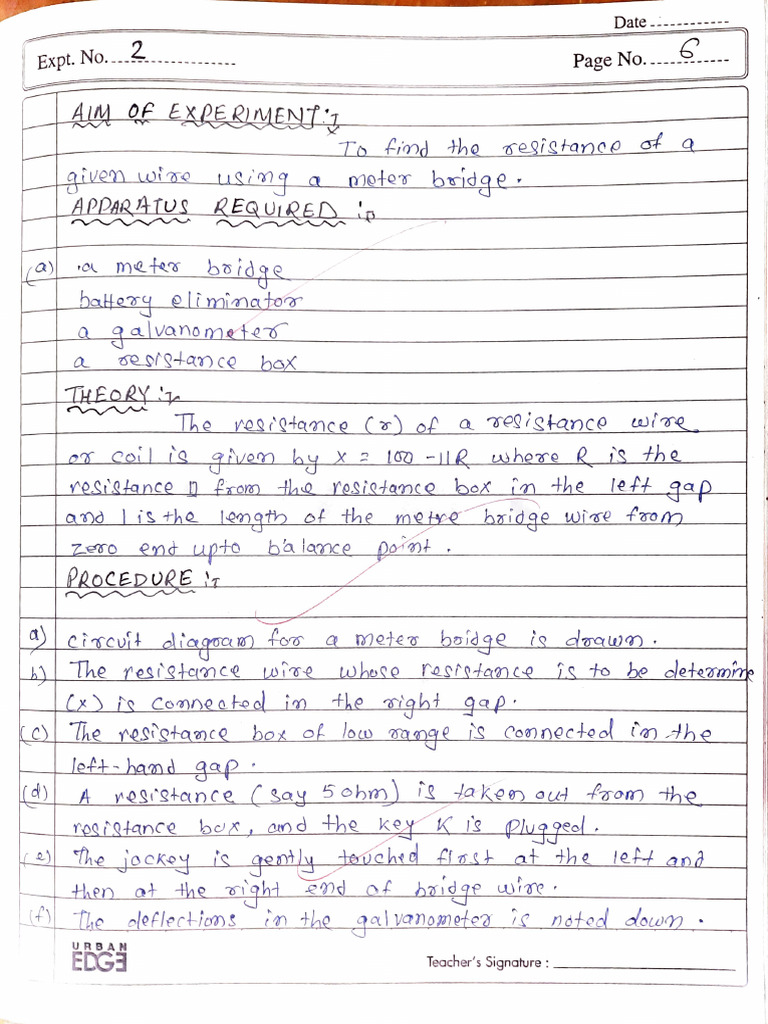 Date
Expt. No. 2
Page No. 6
AIM OF EXPERIMENT:-
To find the resistance of a
given wire using a meter bridge.
APPARATUS REQUIRED :-
(a) a meter bridge
battery eliminator
a galvanometer
a resistance box
THEORY :-
The resistance (r) of a resistance wire
or coil is given by x = 100 - 11R where R is the
resistance from the resistance box in the left gap
and l is the length of the metre bridge wire from
zero end upto balance point.
PROCEDURE :-
a) circuit diagram for a meter bridge is drawn.
b) The resistance wire whose resistance is to be determine
(x) is connected in the right gap.
(c) The resistance box of low range is connected in the
left-hand gap.
(d) A resistance (say 5 ohm) is taken out from the
resistance box, and the key K is plugged.
(e) The jockey is gently touched first at the left and
then at the right end of bridge wire.
(f) The deflections in the galvanometer is noted down.
URBAN
EDGE
Teacher's Signature :